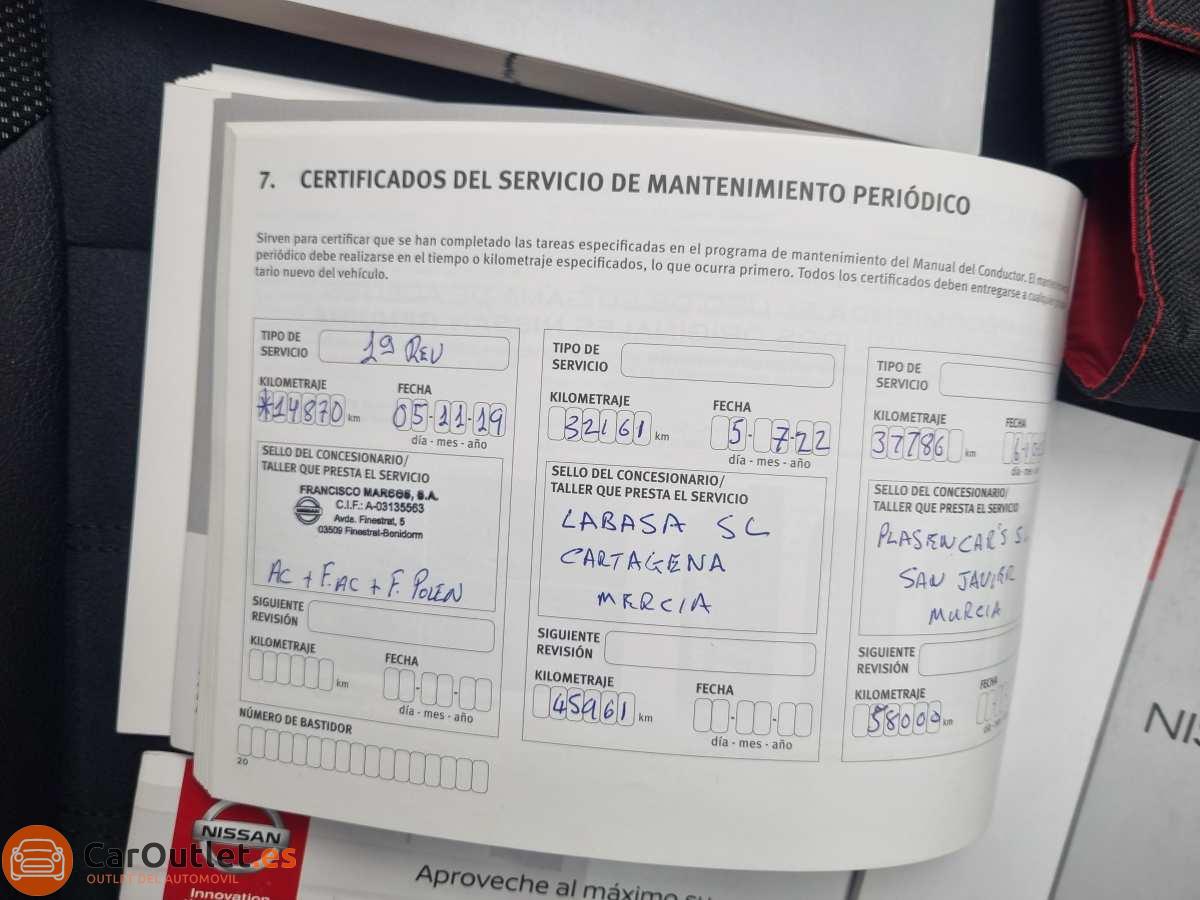 7. CERTIFICADOS DEL SERVICIO DE MANTENIMIENTO PERIÓDICO
Sirven para certificar que se han completado las tareas especificadas en el programa de mantenimiento del Manual del Conductor. El
periódico debe realizarse en el tiempo o kilometraje especificados, lo que ocurra primero. Todos los certificados deben entregarse a
tario nuevo del vehículo.
TIPO DE
SERVICIO
1ª REV
KILOMETRAJE
FECHA
*14870 km
05-11-19
día - mes - año
SELLO DEL CONCESIONARIO/
TALLER QUE PRESTA EL SERVICIO
FRANCISCO MARCOS, S.A.
C.I.F.: A-03135563
Avda. Finestrat, 5
03509 Finestrat-Benidorm
NISSAN
AC + F.AC + F. POLEN
SIGUIENTE
REVISIÓN
KILOMETRAJE
FECHA
km
día - mes - año
NÚMERO DE BASTIDOR
20
TIPO DE
SERVICIO
KILOMETRAJE
FECHA
32161 km
5-7-22
día - mes - año
SELLO DEL CONCESIONARIO/
TALLER QUE PRESTA EL SERVICIO
LABASA SC
CARTAGENA
MERCIA
SIGUIENTE
REVISIÓN
KILOMETRAJE
FECHA
45961 km
día - mes - año
TIPO DE
SERVICIO
KILOMETRAJE
FECHA
37786 km
SELLO DEL CONCESIONARIO/
TALLER QUE PRESTA EL SERVICIO
PLASENCAR'S S
SAN JAVIER
MURCIA
SIGUIENTE
REVISIÓN
KILOMETRAJE
FECHA
58000 km
NIS
NISSAN
Innovation
Aproveche al máximo su
CarOutlet.es
OUTLET DEL AUTOMOVIL